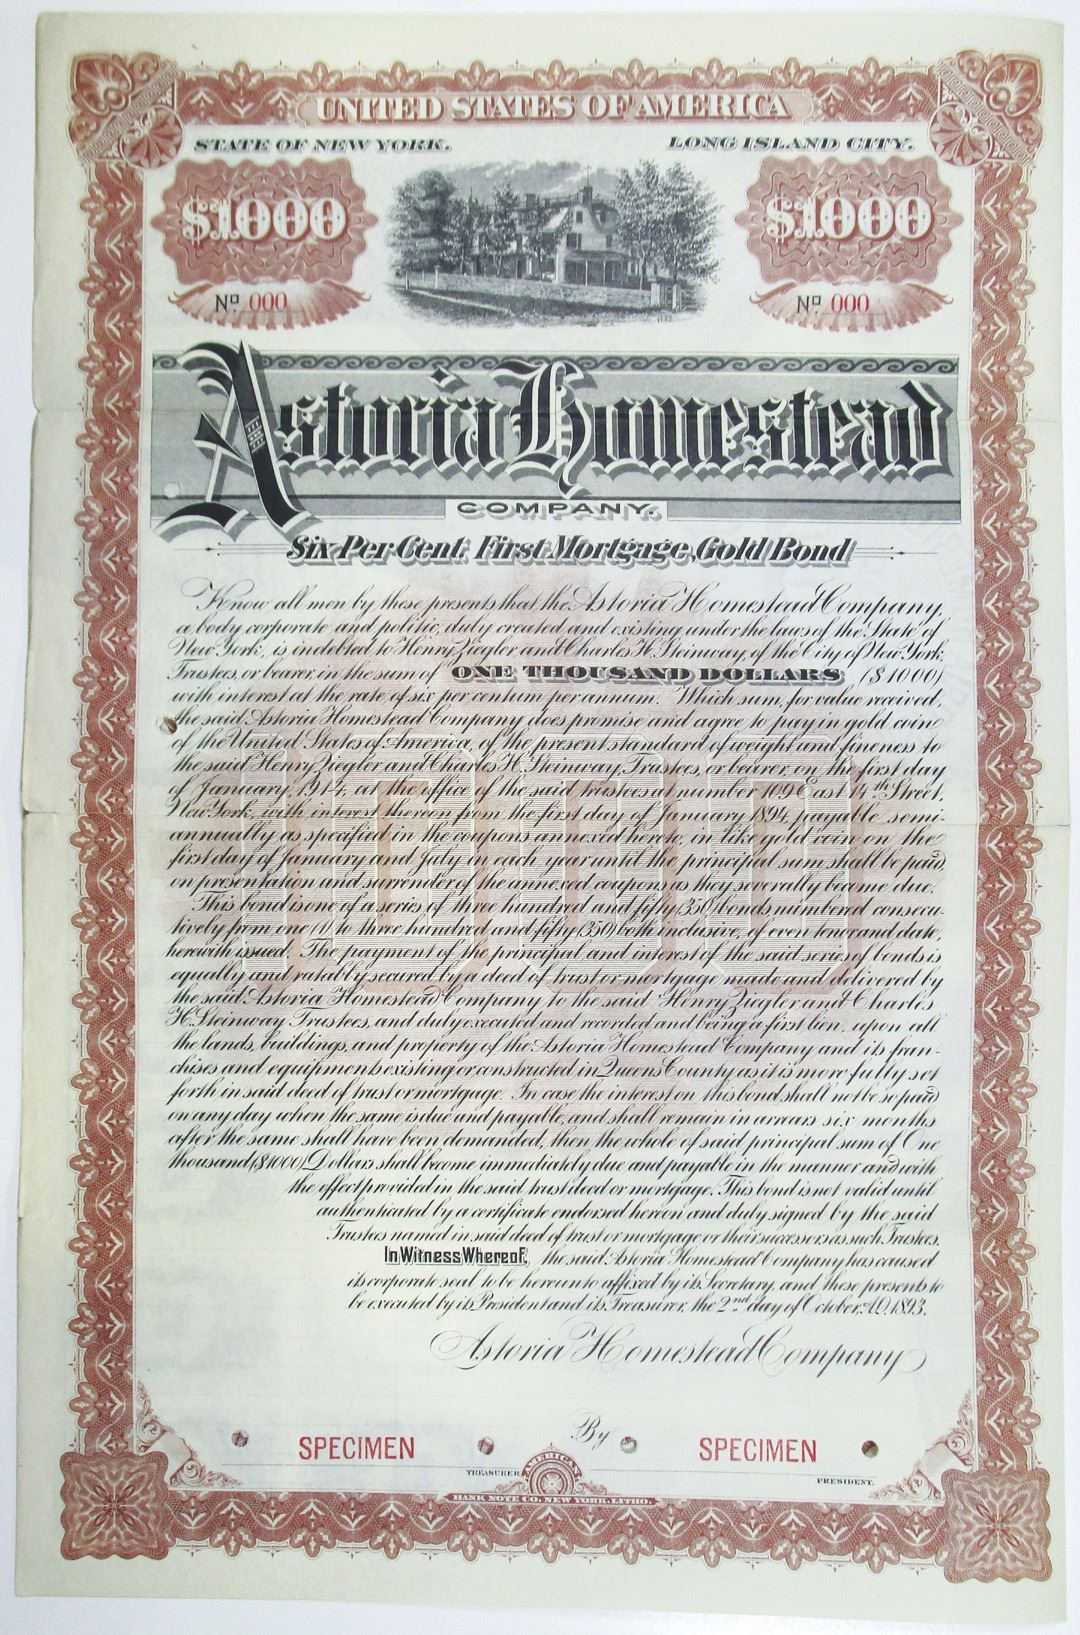 UNITED STATES OF AMERICA
STATE OF NEW YORK. LONG ISLAND CITY.
$1000 $1000
No. 000 No. 000
Astoria Homestead
COMPANY.
Six Per Cent. First Mortgage, Gold Bond
Know all men by these presents that the Astoria Homestead Company,
a body corporate and politic, duly created and existing under the laws of the State of
New York, is indebted to Henry Ziegler and Charles H. Steinway, of the City of New York,
Trustees, or bearer, in the sum of ONE THOUSAND DOLLARS ($1000)
with interest at the rate of six per centum per annum. Which sum, for value received,
the said Astoria Homestead Company does promise and agree to pay in gold coin
of the United States of America, of the present standard of weight and fineness to
the said Henry Ziegler and Charles H. Steinway, Trustees, or bearer, on the first day
of January, 1914, at the office of the said trustees at number 109 East 14th Street,
New York, with interest thereon from the first day of January 1894, payable semi-
annually as specified in the coupons annexed hereto, in like gold coin on the
first day of January and July in each year until the principal sum shall be paid,
on presentation and surrender of the annexed coupons as they severally become due.
This bond is one of a series of three hundred and fifty (350) bonds, numbered consecu-
tively from one (1) to three hundred and fifty (350) both inclusive, of even tenor and date,
herewith issued. The payment of the principal and interest of the said series of bonds is
equally and ratably secured by a deed of trust or mortgage made and delivered by
the said Astoria Homestead Company to the said Henry Ziegler and Charles
H. Steinway Trustees, and duly executed and recorded and being a first lien, upon all
the lands, buildings, and property of the Astoria Homestead Company and its fran-
chises and equipments existing or constructed in Queens County as it is more fully set
forth in said deed of trust or mortgage. In case the interest on this bond shall not be so paid
on any day when the same is due and payable, and shall remain in arrears six months
after the same shall have been demanded, then the whole of said principal sum of One
thousand ($1000) Dollars shall become immediately due and payable in the manner and with
the effect provided in the said trust deed or mortgage. This bond is not valid until
authenticated by a certificate endorsed hereon and duly signed by the said
Trustees named in said deed of trust or mortgage or their successors as such Trustees.
In Witness Whereof, the said Astoria Homestead Company has caused
its corporate seal to be hereunto affixed by its Secretary, and these presents to
be executed by its President and its Treasurer, the 2nd day of October, A.D. 1893.
Astoria Homestead Company
By
SPECIMEN SPECIMEN
TREASURER PRESIDENT.
AMERICAN
BANK NOTE CO. NEW YORK. LITHO.